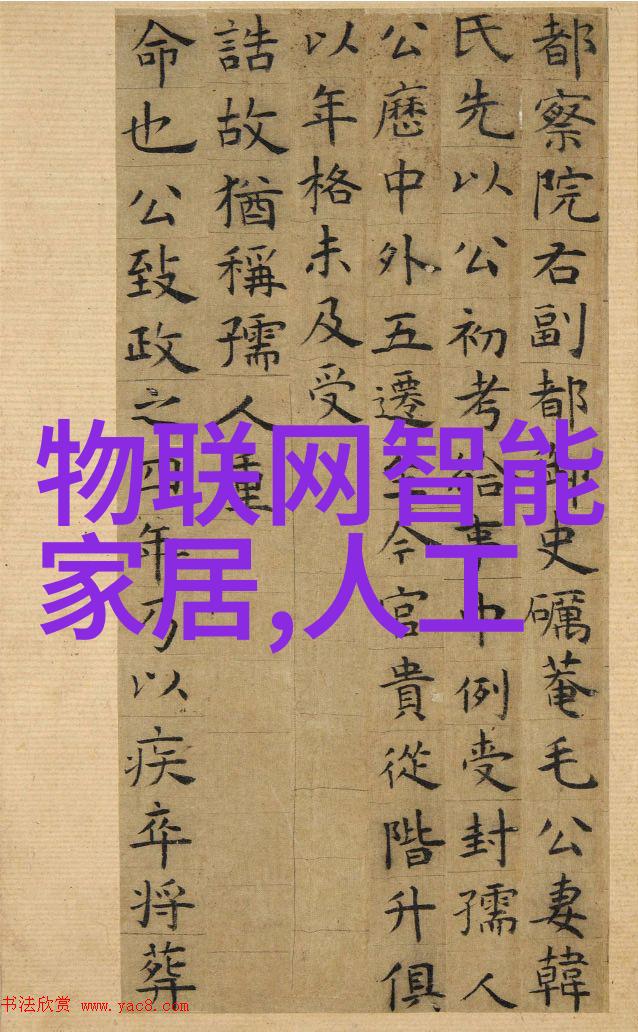 都察院右副都御史礪菴毛公妻韓
氏先以公初考給事中例受封孺人
公歷中外五遷至今官貴從階升俱
以年格未及受
誥故猶稱孺人重
命也公致政之四年乃以疾卒将葬
物联网智能
家居,人工
书法欣赏 www.yac8.com